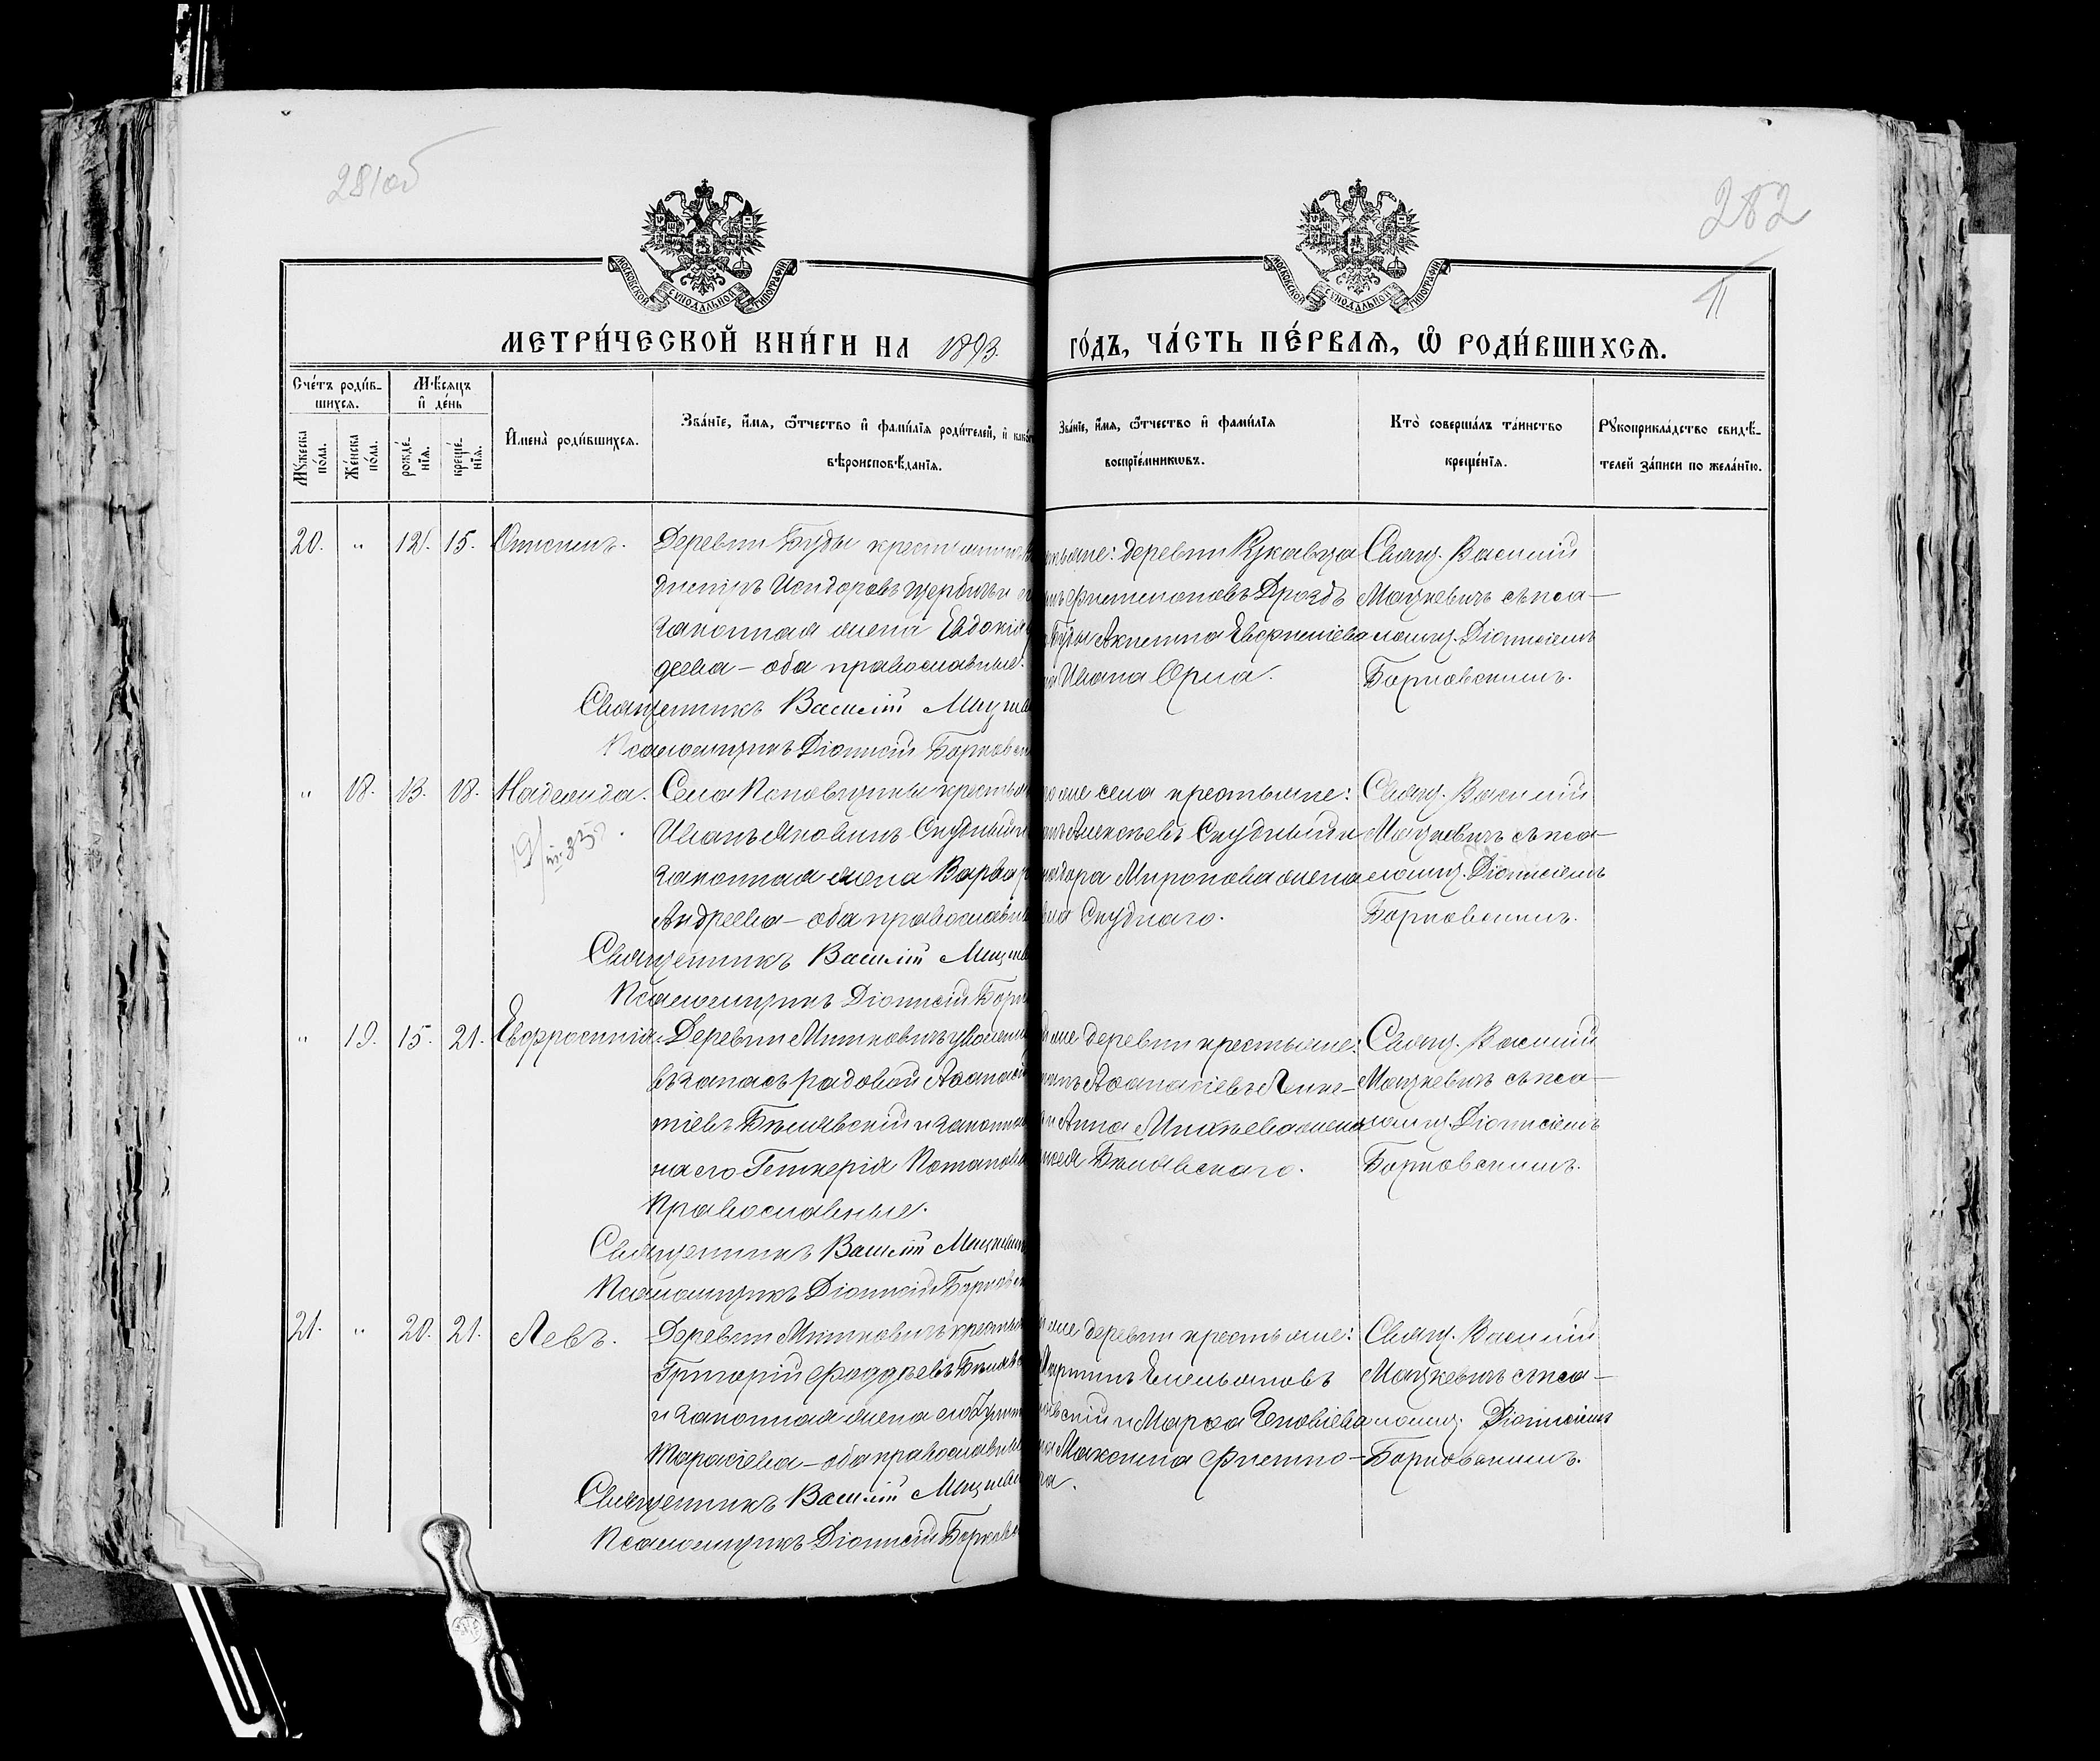 281об
282
11
МОСКОВСКОЙ СѴНОДАЛЬНОЙ ТИПОГРАФІИ
МОСКОВСКОЙ СѴНОДАЛЬНОЙ ТИПОГРАФІИ
МЕТРИ́ЧЕСКОЙ КНИ́ГИ НА 1893.
ГО́ДЪ, ЧА́СТЬ ПЕ́РВАѦ, Ѡ РОДИ́ВШИХСѦ.
Сче́тъ роди́в-
шихсѧ.
Мѣ́сѧцъ
и де́нь
Мꙋ́жеска по́ла.
Же́нска по́ла.
рожде́нїѧ.
креще́нїѧ.
Имена̀ роди́вшихсѧ.
Зва́нїе, и́мѧ, ѻ́тчество и фами́лїѧ роди́телей, и како́
вѣроисповѣ́данїѧ.
Зва́нїе, и́мѧ, ѻ́тчество и фами́лїѧ
воспрїе́мникѡвъ.
Кто̀ соверша́лъ та́инство
креще́нїѧ.
Рꙋкоприкла́дство свидѣ́-
телей за́писи по жела́нїю.
20. " 12. 15. Онисимъ.
Деревни Буды крестьянинъ
Исидоровъ Щербичъ и
законная жена Евдокія
деева – оба православные.
Священникъ Василій Мацке
Псаломщикъ Діонисій Борковс
деревни Рукавца
Филимоновъ Дроздъ
Буды Акилина Евфимиева
Ивана Орла.
Свящ. Василій
Мацкевичъ съ пса-
ломщ. Діонисіемъ
Борковскимъ.
" 18. 13. 18. Надежда.
Села Поповщины крестья
Иванъ Яковинъ Скудный и
законная жена Варвара
Андреева – оба православн
Священникъ Василій Мацке
Псаломщикъ Діонисій Борк
же села крестьяне:
Алексѣевъ Скудный и
Миронова жена
Скуднаго.
Свящ. Василій
Мацкевичъ съ пса-
ломщ. Діонисіемъ
Борковскимъ.
" 19. 15. 21. Евфросинія.
Деревни Митьковичъ уволенный
въ запасъ рядовой Аѳанасій
тіевъ Бѣлявскій и законная
на его Гликерія Потапова
Православные.
Священникъ Василій Мацкеви
Псаломщикъ Діонисій Борковс
же деревни крестьяне:
Аѳанасіевъ
и Анна Михѣева жена
Бѣлявскаго.
Свящ. Василій
Мацкевичъ съ пса-
ломщ. Діонисіемъ
Борковскимъ.
21. " 20. 21. Левъ.
Деревни Митьковичъ крестьян
Григорій Фаддѣевъ Бѣляв
и законная жена его
Тарасіева – оба православные
Священникъ Василій Мацкев
Псаломщикъ Діонисій Борковс
же деревни крестьяне:
Мартинъ Емельяновъ
скій и Марѳа Зеновіева
Максима Филипо-
ва.
Свящ. Василій
Мацкевичъ съ пса-
ломщ. Діонисіемъ
Борковскимъ.